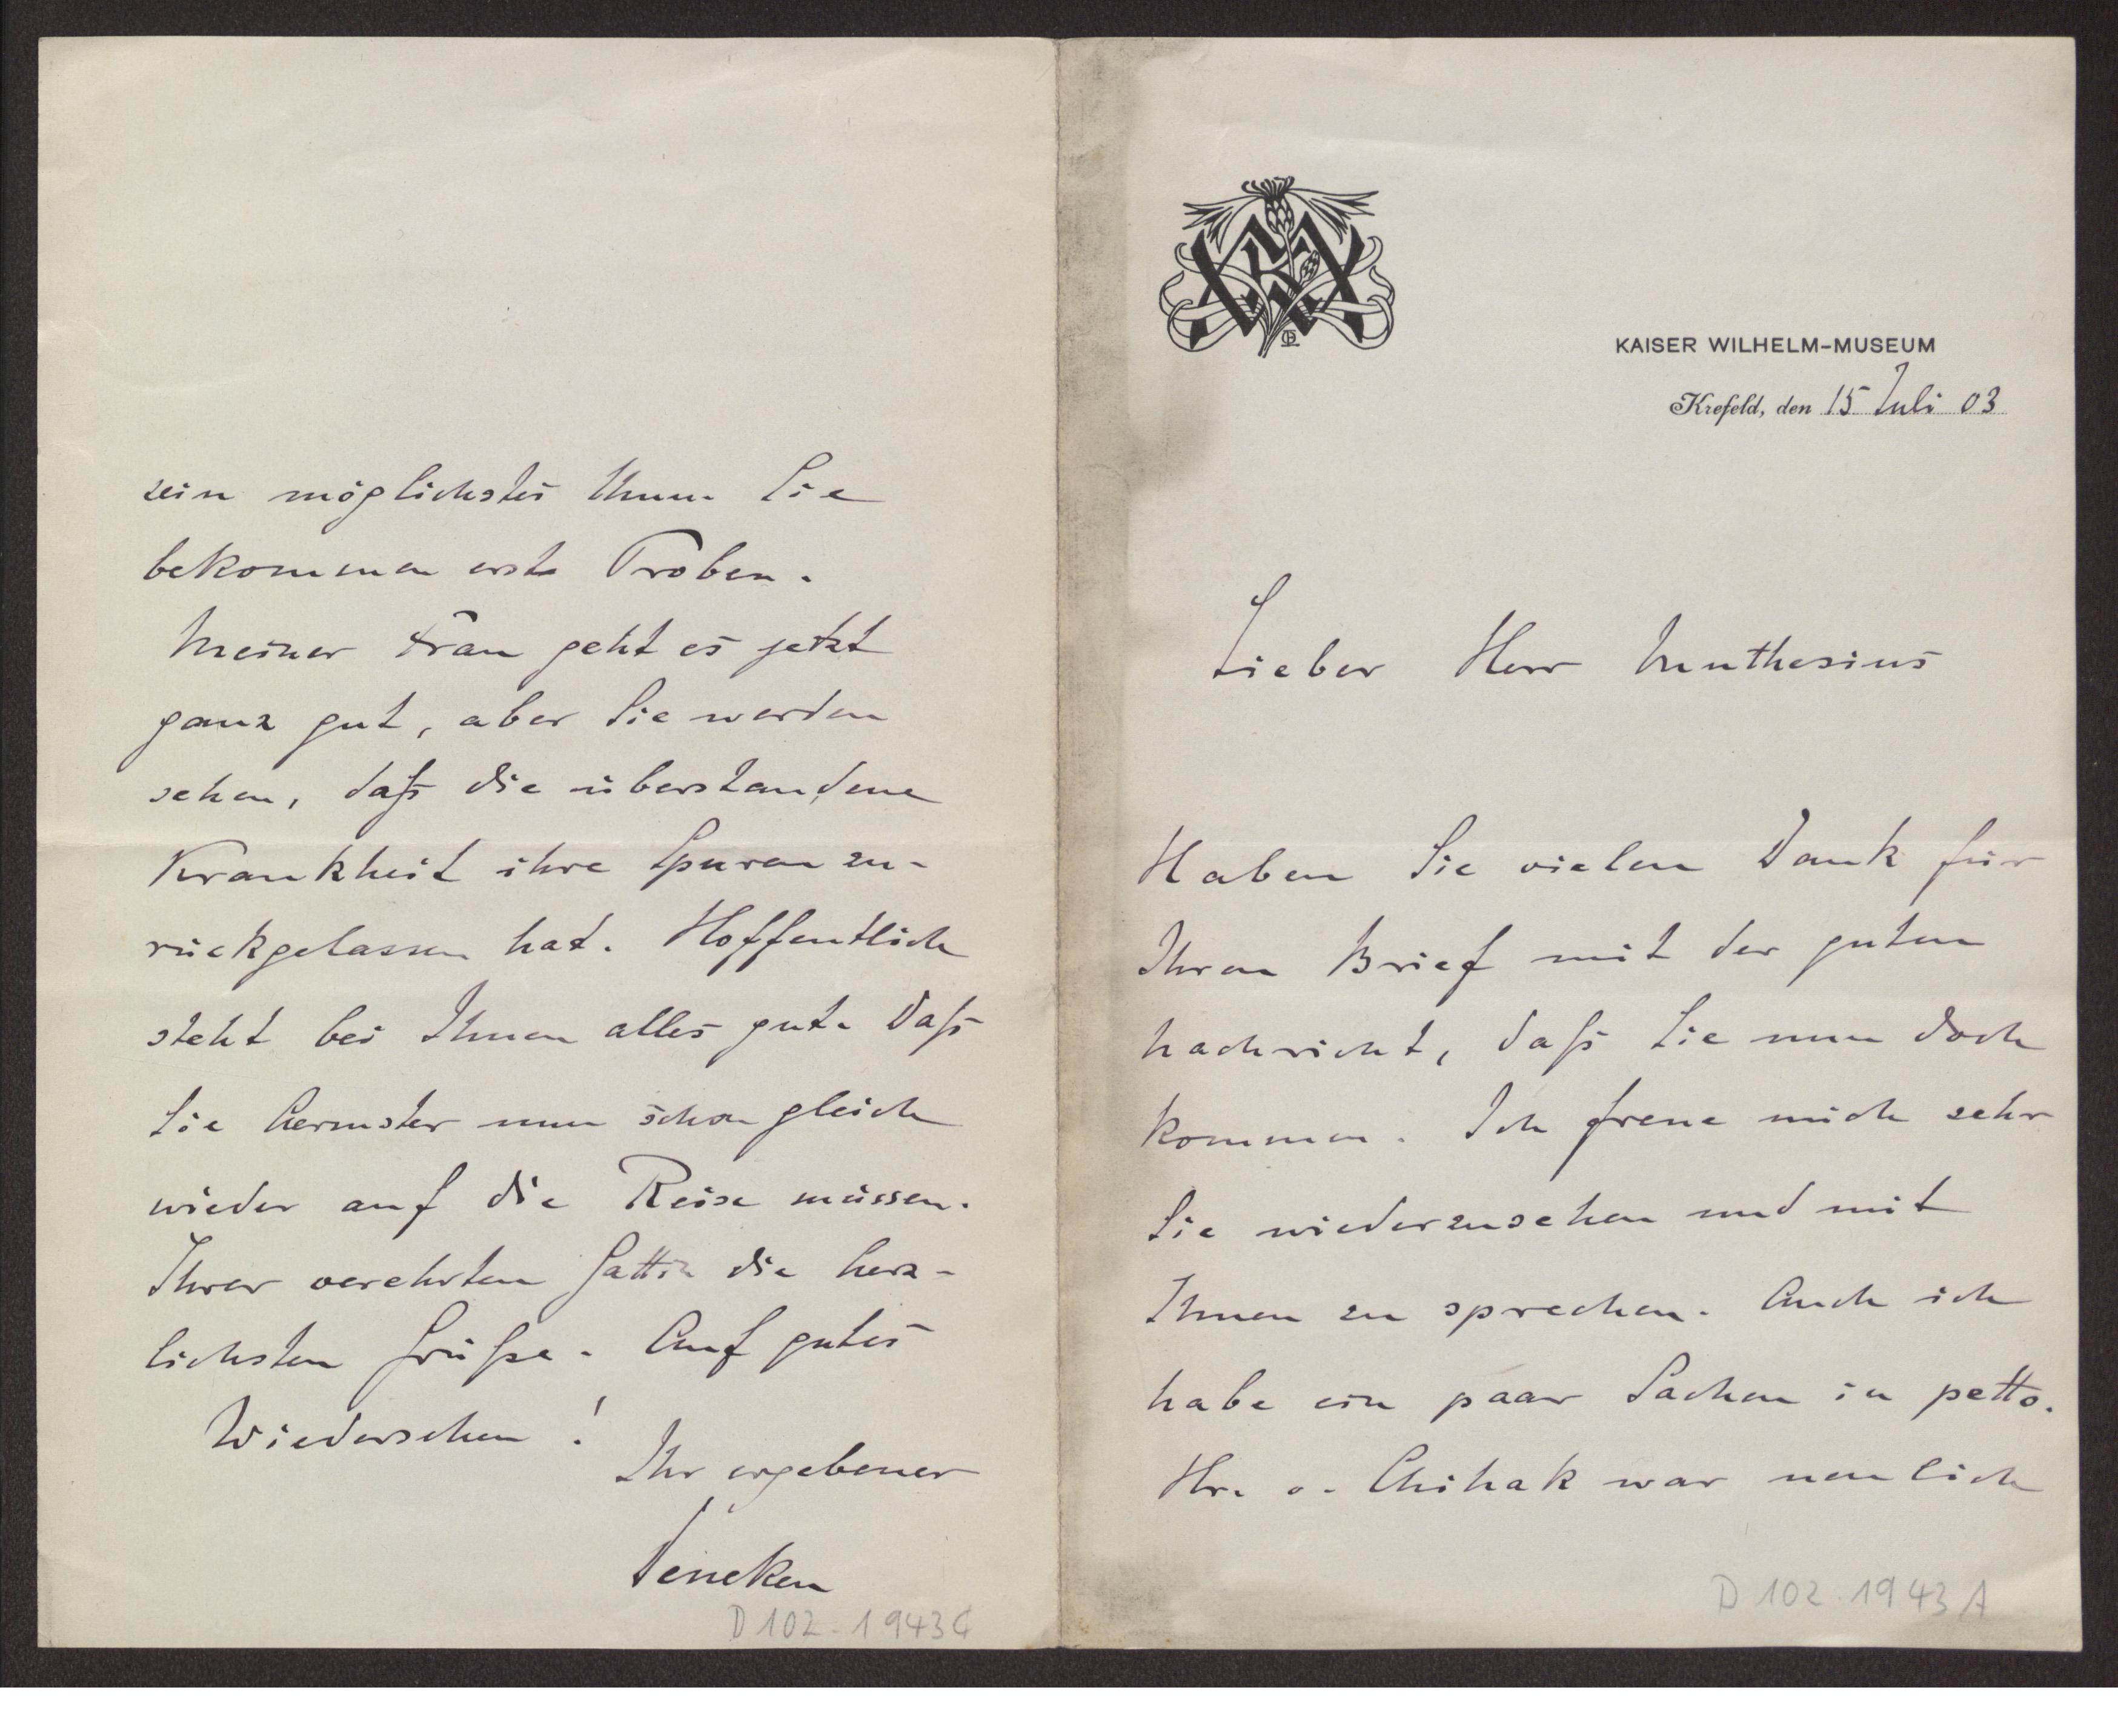 KAISER WILHELM-MUSEUM
Krefeld, den 15 Juli 03
Lieber Herr Muthesius
Haben Sie vielen Dank für
Ihren Brief mit der guten
Nachricht, daß Sie nun doch
kommen. Ich freue mich sehr
Sie wiederzusehen und mit
Ihnen zu sprechen. Auch ich
habe ein paar Sachen in petto.
Hr. v. Czihak war neulich
D 102-1943 A
sein möglichstes thun. Sie
bekommen erst Proben.
Meiner Frau geht es jetzt
ganz gut, aber Sie werden
sehen, daß die überstandene
Krankheit ihre Spuren zu-
rückgelassen hat. Hoffentlich
steht bei Ihnen alles gut. Daß
Sie Aermster nun schon gleich
wieder auf die Reise müssen.
Ihrer verehrten Gattin die herz-
lichsten Grüße. Auf gutes
Wiedersehen!
Ihr ergebener
Deneken
D 102-1943 C